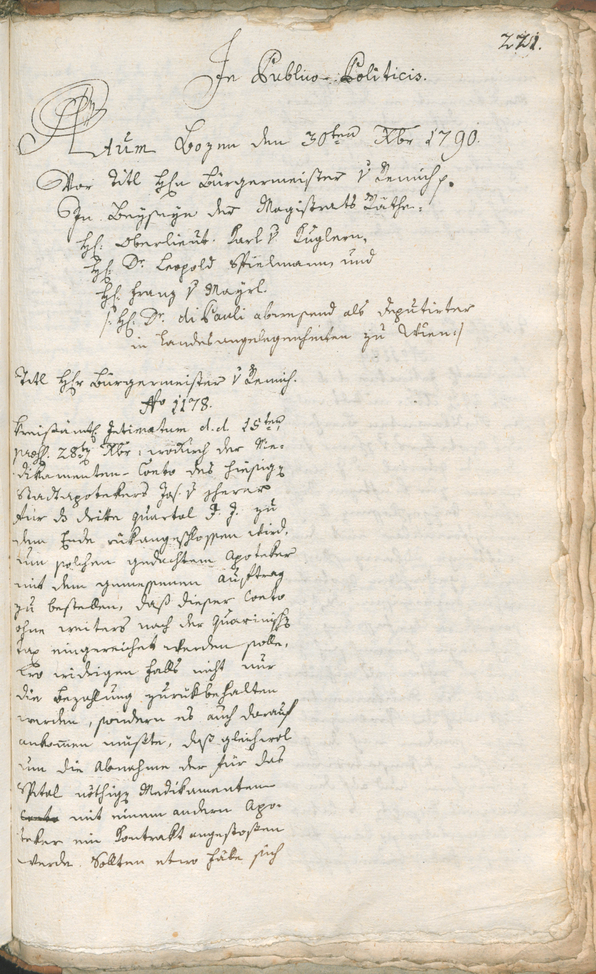 221.
In Publico-Politicis.
Actum Bozen den 30ten Xbr 1790.
Vor Titl Hhn Bürgermeister v Remich p.
In Beyseyn der Magistrats Räthe.
Hh. Oberlieut. Karl v Kuglern,
Hh. Dr. Leopold Spielmann, und
Hh. Franz v Mayrl.
/: Hh. Dr. di Pauli abwesend als deputirter
in Landesangelegenheiten zu Wien :/
Titl Hhr Bürgermeister v Remich.
No 1178.
Kreisamtl. Intimatum d. d. 15ten
præs. 28ten Xbr, wodurch der Me-
dikamenten-Conto des hiesigen
Stadtapotekers Jos. v Scherer
für das dritte Quartal d. J. zu
dem Ende rükangeschlossen wird,
um solchen gedachtem Apoteker
mit dem gemessenen Auftrag
zu bestellen, daß dieser Conto
ohne weiters nach der Quarinischen
Tax eingereichet werden solle,
wo widrigen falls nicht nur
die Bezahlung zurükbehalten
werden, sondern es auch darauf
ankommen müßte, daß gleichwol
um die Abnahme der für das
Spital nöthigen Medikamenten
mit einem andern Apo-
teker ein Kontrakt angestoßen
werde. Sollten etwo Fälle sich